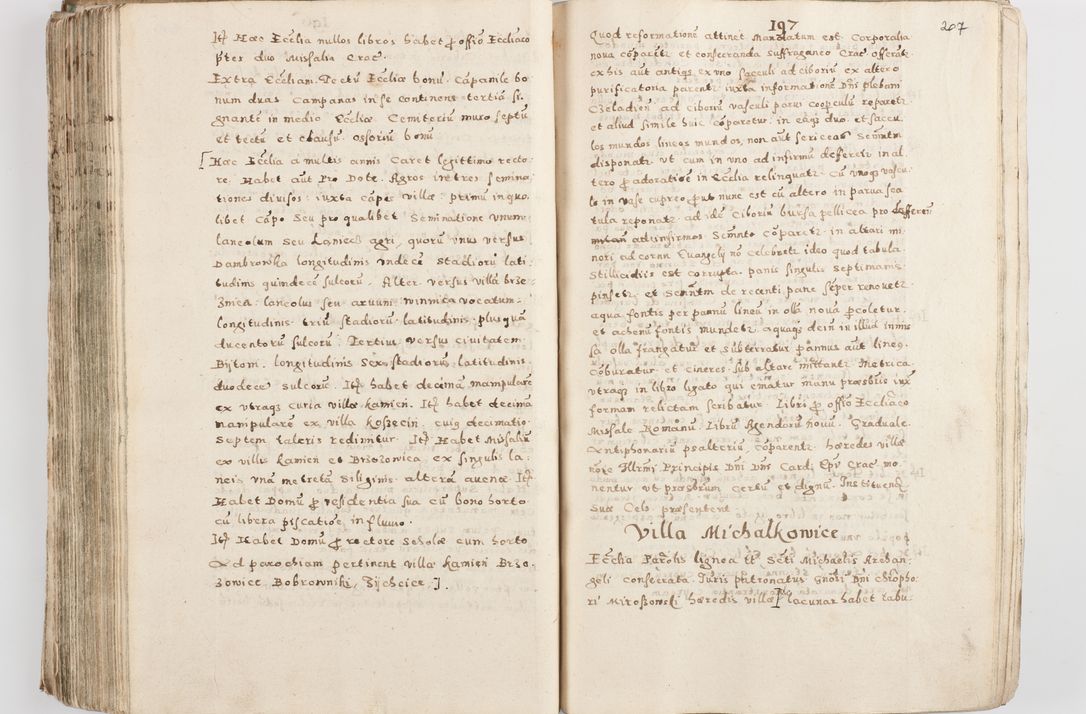 Itẽ Haec Ecclia nullos libros habet ꝓ offio Eccliaco
ꝓter duo Missalia Crac.
Extra Eccliam. Tectũ Eccliae bonũ. Cãpanile bo
num duas campanas in se continens tertiã si
gnantẽ in medio Eccliae Cemiteriũ muro septũ
et tectũ et clausũ ossoriũ bonũ
[Haec Ecclia a multis annis Caret legittimo recto
re. Habet aũt Pro Dote. Agros in tres semina
tiones divisos: iuxta cãpos villae: primũ in quo
libet cãpo seu pro qualibet Seminatione unum
laneolum seu Kaniecz agri, quorũ unus versus
Dambrowka longitudinis undecẽ stadiorũ lati
tudinis quindecẽ sulcorũ. Alter versus villã Brze
znica: laneolus seu arvum winnica vocatum
longitudinis triũ stadiorũ latitudinis plusquã
ducentorũ sulcorũ. Tertius versus civitatem
Bijtom. longitudinis sex stadiorũ latitudinis
duodecẽ sulcorũ. Itẽ habet decimã manipularẽ
ex utraqȝ curia villae Kamieñ. Itẽ habet decimã
manipularẽ ex villa Koszecin cuiȝ decimatio
septem taleris redimitur. Itẽ Habet Missaliũ
ex villis Kamień et Brzozowica ex singulis la
neis unã metretã siliginis alterã avenae Itẽ
Habet Domũ ꝓ residentia sua cũ bono horto
cũ libera piscatioẽ in fluvio.
Itẽ Habet Domũ ꝓ rectore scholae cum horto
Ad parochiam pertinent villa Kamień Brzo
zowice, Bobrowniki, Sijcheier.]
197
207
Quod reformationẽ attinet Mandatum est. Corporalia
nova cõparẽt et consecranda suffraganeo Crac offerãt
ex his aũt antiqs ex uno sacculi ad ciboriũ ex altero
purificatoria parent iuxta informationẽ Dñi plebani
Czeladien ad ciboriũ vasculi parvi coopculũ reparetȝ
et aliud simile huic cõparetur: in eaqȝ duo et saccu
los mundos lineos mundos, non aũt sericeas Scrãmtm
disponatȝ ut cum in uno ad infirmũ defferetr in al
tero ꝓ adoratioẽ in Ecclia relinquatȝ cũ uno vascu
lo in vase cupreo ꝓut nunc est cũ altero in parva sca
tula reponatȝ ad idẽ Ciboriũ bursa pellicea pro defferen
ad infirmos Scrãmto cõparetȝ in altari mi
nori ad cornu Evangely nõ celebretȝ ideo quod tabula
stillicidiis est corrupta. panis singulis septimanis
pinsetȝ et Scrãmtm de recenti pane sẽper renovetȝ
aqua fontis per pannũ lineũ in ollã novã ꝓcoletur
et acervũ fontis mundetȝ aquaqȝ dein in illud immis
sa olla frangatur et subterratur pannus aũt lineȝ
cõburatur et cineres sub altare mittantȝ Metrica
utraqȝ in libro ligato qui ematur manu praesbris iux
formam relictam scribatur. Libri ꝓ offio Eccliaco
Missale Romanũ Librũ Agendorũ novũ Graduale
Antiphonariũ psalteriũ cõparentȝ haeredes villae
nõie Illrmi Principis Dñi Dñi Card. Epi Crac mo
nentur ut praesbrum certũ et dignũ Instituendũ
Suae Cels praesentent
Villa Michalkowice
Ecclia Parolis lignea tt Scti Michaelis Archan
geli consecrata. Juris patronatus Gnosi Dñi Chropho
ri Miroszowski haeredis villae lacunar habet tabu